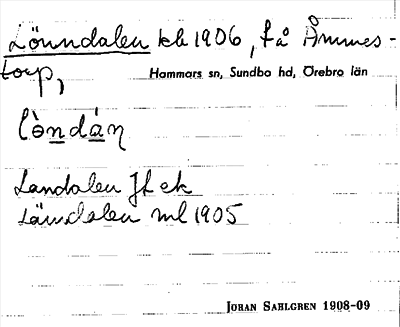 Lönndalen kb 1906, få Åmmes-
torp,
Hammars sn, Sundbo hd, Örebro län
lòndáη
Landalen Jf ek
Länndalen ml 1905
JOHAN SAHLGREN 1908-09